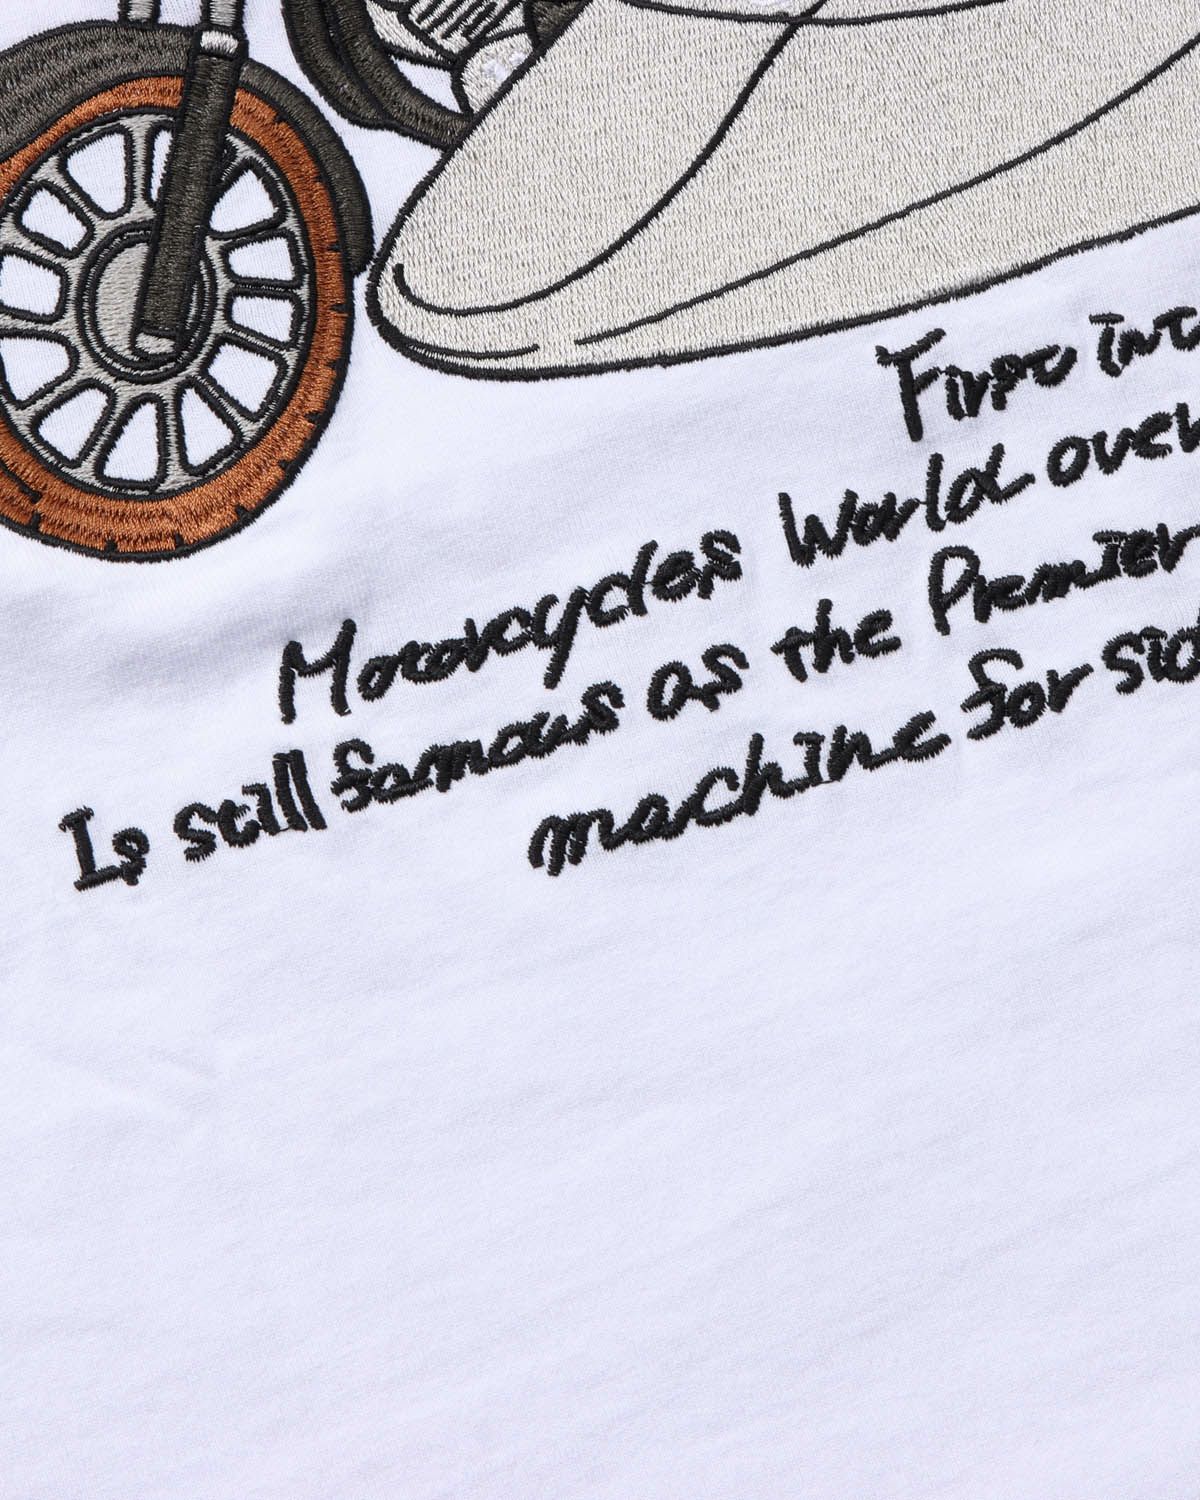 First
Motorcycles World over
Is still famous as the Premier
machine for